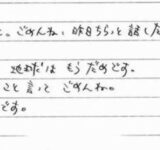 と。ごめんね、昨日ちらっと話した
はもうだめです。
こと言ってごめんね。
です。